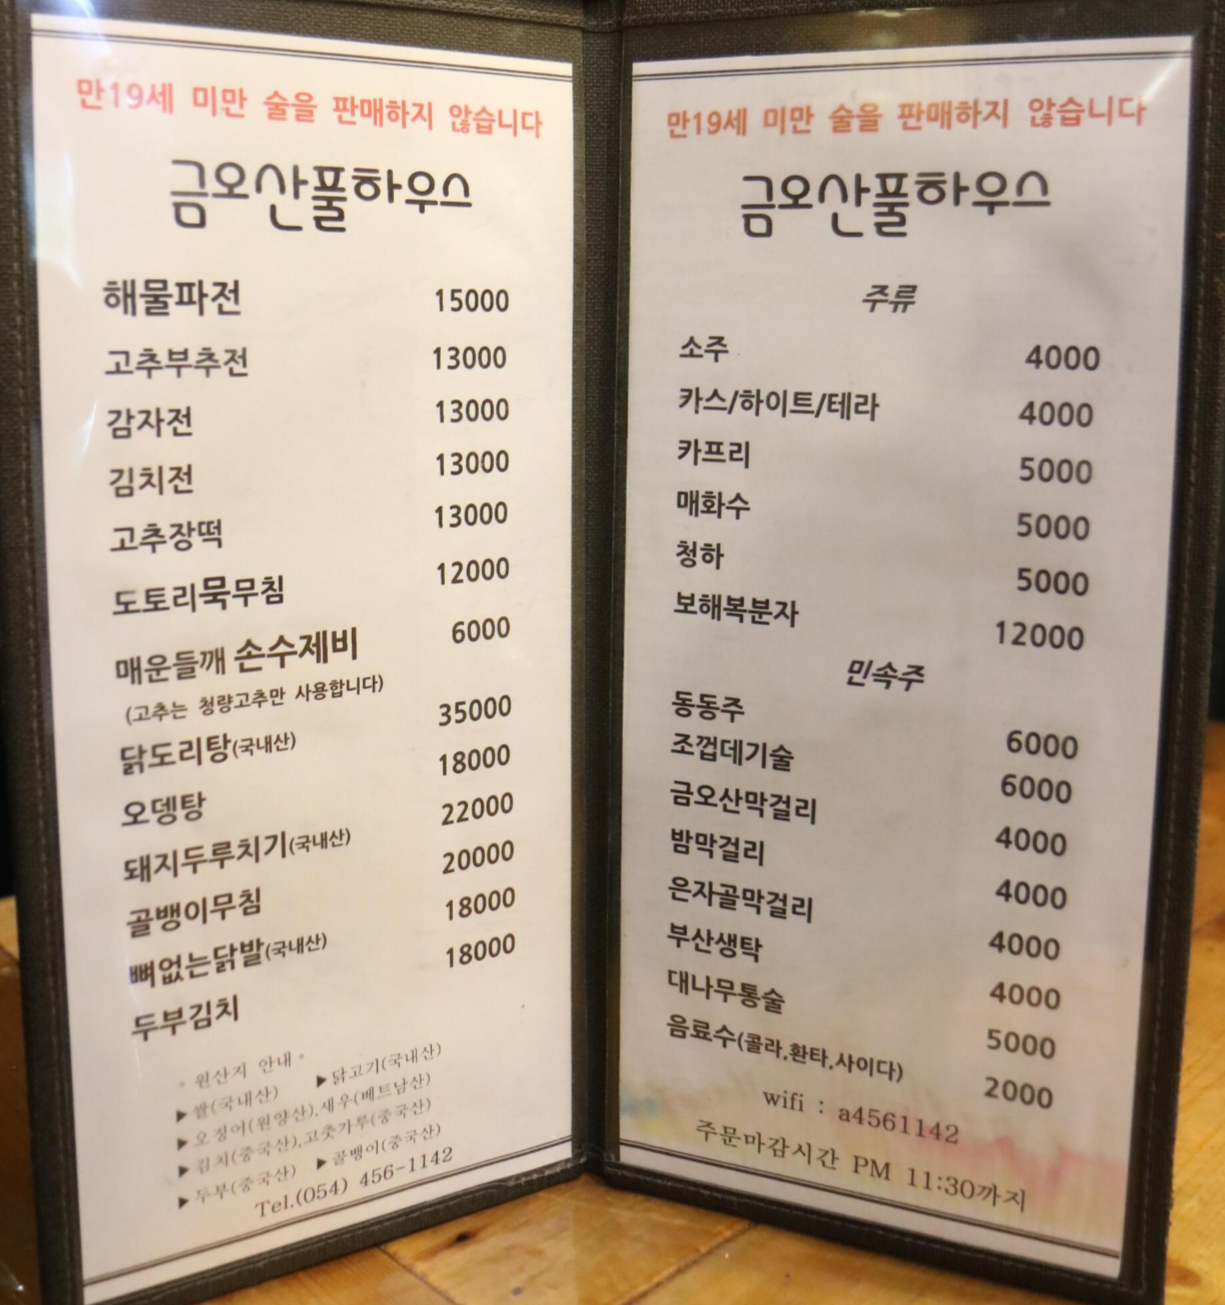 만19세 미만 술을 판매하지 않습니다
금오산풀하우스
해물파전 15000
고추부추전 13000
감자전 13000
김치전 13000
고추장떡 13000
도토리묵무침 12000
매운들깨 손수제비 6000
(고추는 청량고추만 사용합니다)
닭도리탕(국내산) 35000
오뎅탕 18000
돼지두루치기(국내산) 22000
골뱅이무침 20000
뼈없는닭발(국내산) 18000
두부김치 18000
◦ 원산지 안내 ◦
▶쌀(국내산) ▶닭고기(국내산)
▶오징어(원양산),새우(베트남산)
▶김치(중국산),고춧가루(중국산)
▶두부(중국산) ▶골뱅이(중국산)
Tel.(054) 456-1142
만19세 미만 술을 판매하지 않습니다
금오산풀하우스
주류
소주 4000
카스/하이트/테라 4000
카프리 5000
매화수 5000
청하 5000
보해복분자 12000
민속주
동동주 6000
조껍데기술 6000
금오산막걸리 4000
밤막걸리 4000
은자골막걸리 4000
부산생탁 4000
대나무통술 5000
음료수(콜라,환타,사이다) 2000
wifi : a4561142
주문마감시간 PM 11:30까지